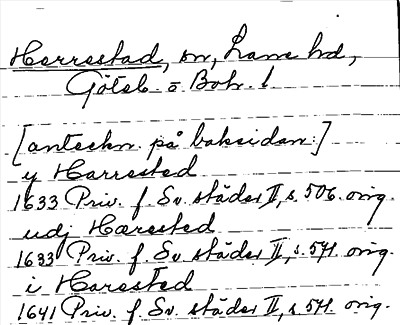 Herrestad, sn, Lane hd,
Göteb. o Boh. l.
[anteckn. på baksidan:]
y Harrested
1633 Priv. f. Sv. städer II, s. 506. orig.
udj Harested
1633 Priv. f. Sv. städer II, s. 571. orig.
i Harested
1641 Priv. f. Sv. städer II, s. 571. orig.